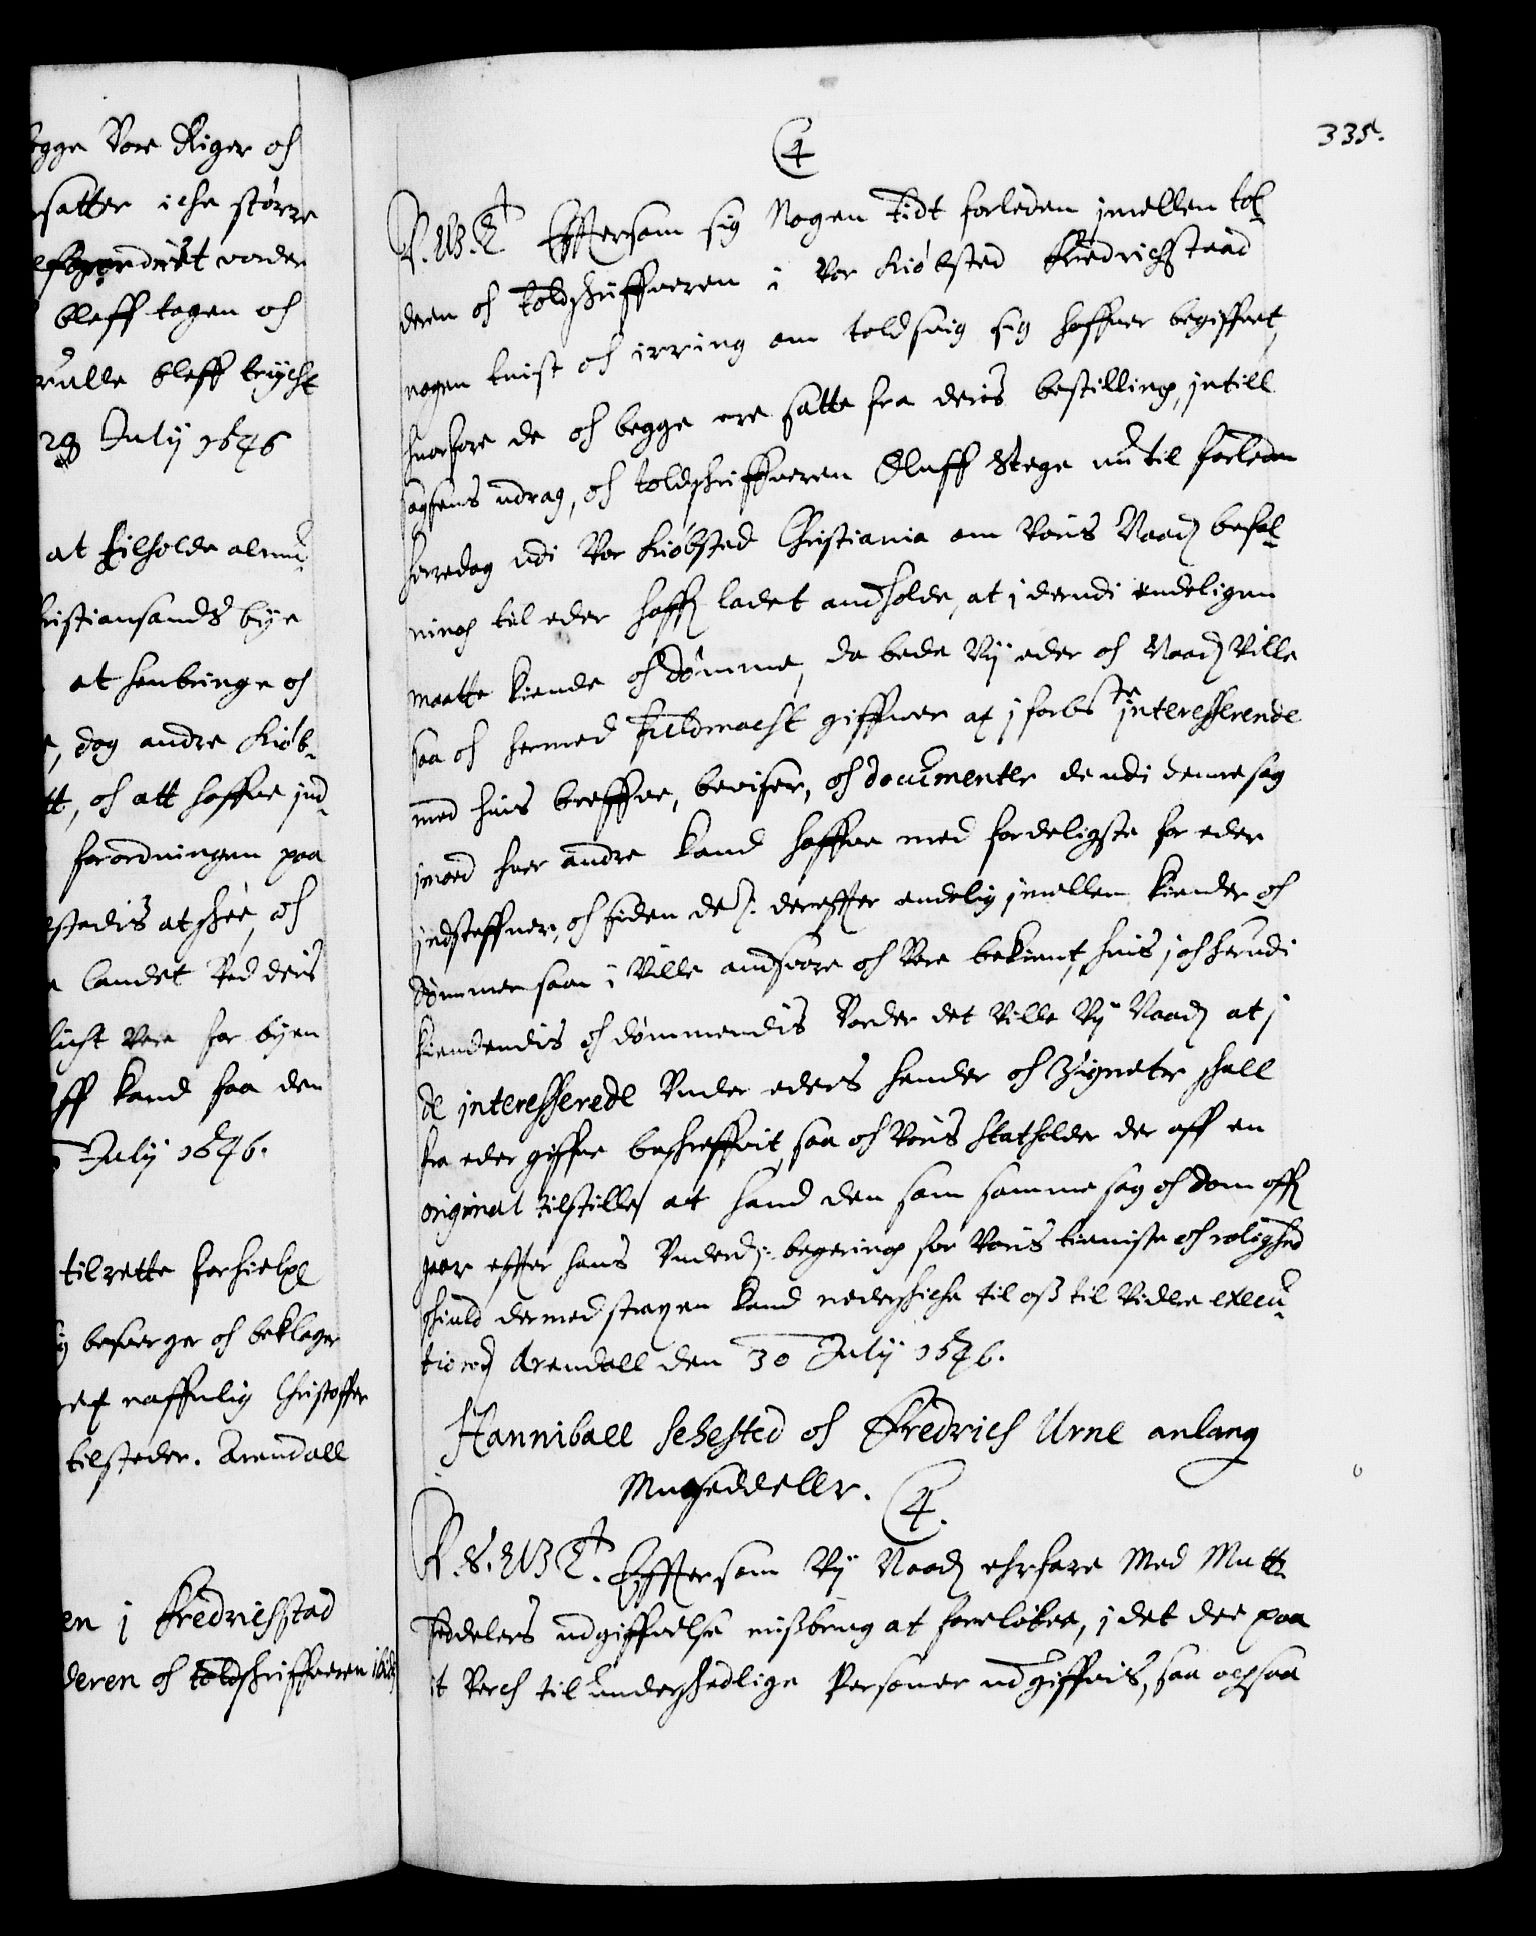 egge Vore Riger och
satter iche større
bleff tagen och
rulle bleff trycht
29 July 1646
at tilholde almu-
hristiansands bye
at henbringe och
, dog andre kiøb-
tt, och att haffue ind-
forordningen paa
stedis at skee, och
landet Ved deris
licht Vere for byen
ff kand faa den
July 1646.
tilrette forhielpe
besuerger och beklager
naffnlig Christoffer
tilsteder. Arendall
en i Fredrichstad
deren och toldskriffueren ibid:
335.
4
C. 4. E. G. T. Effttersom sig Nogen tidt forleden imellen tol-
deren och toldskriffueren i Vor kiøbsted Friedrichstaad
nogen tuist och irring om toldsuig sig haffuer begiffuet,
huorfore de och begge ere satte fra deris bestilling, intill
sagsens udrag, och toldskriffueren Oluff Stege nu til forleden
herredag udi Vor kiøbsted Christiania om Voris Naad: befal-
ning til eder haffr ladet andholde, at i derudi endeligen
maatte kiende och dømme, da bede Vy eder och Naad: Ville
saa och hermed fuldmacht giffuer at i forbe:te interesserende
med huis breffue, beuiser, och documenter de udi denne sag
imod huer andre kand haffue med forderligste for eder
indsteffner, och siden de s: dereffter endelig imellem kiender och
dømmer som i Ville andsuare och Vere bekient, huis i och herudi
kiendendis och dømmendis Vorder det Ville Vy Naad: at i
de interesserede Vnder eders hender och Zigneter skall
fra eder giffue beskreffuit, saa och Voris Statholder der aff en
original tilstille, at hand den som samme sag och dom offr
gaar effter hans Vnderd: begering for Voris tieniste och rolighed
skiuld dermed strax en kand nederskiche til oss til Videre execu-
tion. Arendall den 30 July 1646.
Hanniball Sehested och Fredrich Urne anlang
Mutseddeller. 4.
C. 4. S. G. E. T. Efftersom Vy Naad: ehrfare Med Mutt-
seddelers udgiffuelse missbrug at foreløbe, i det dee paa
it Verch til underskedlige Personer udgiffuis, saa ochsaa